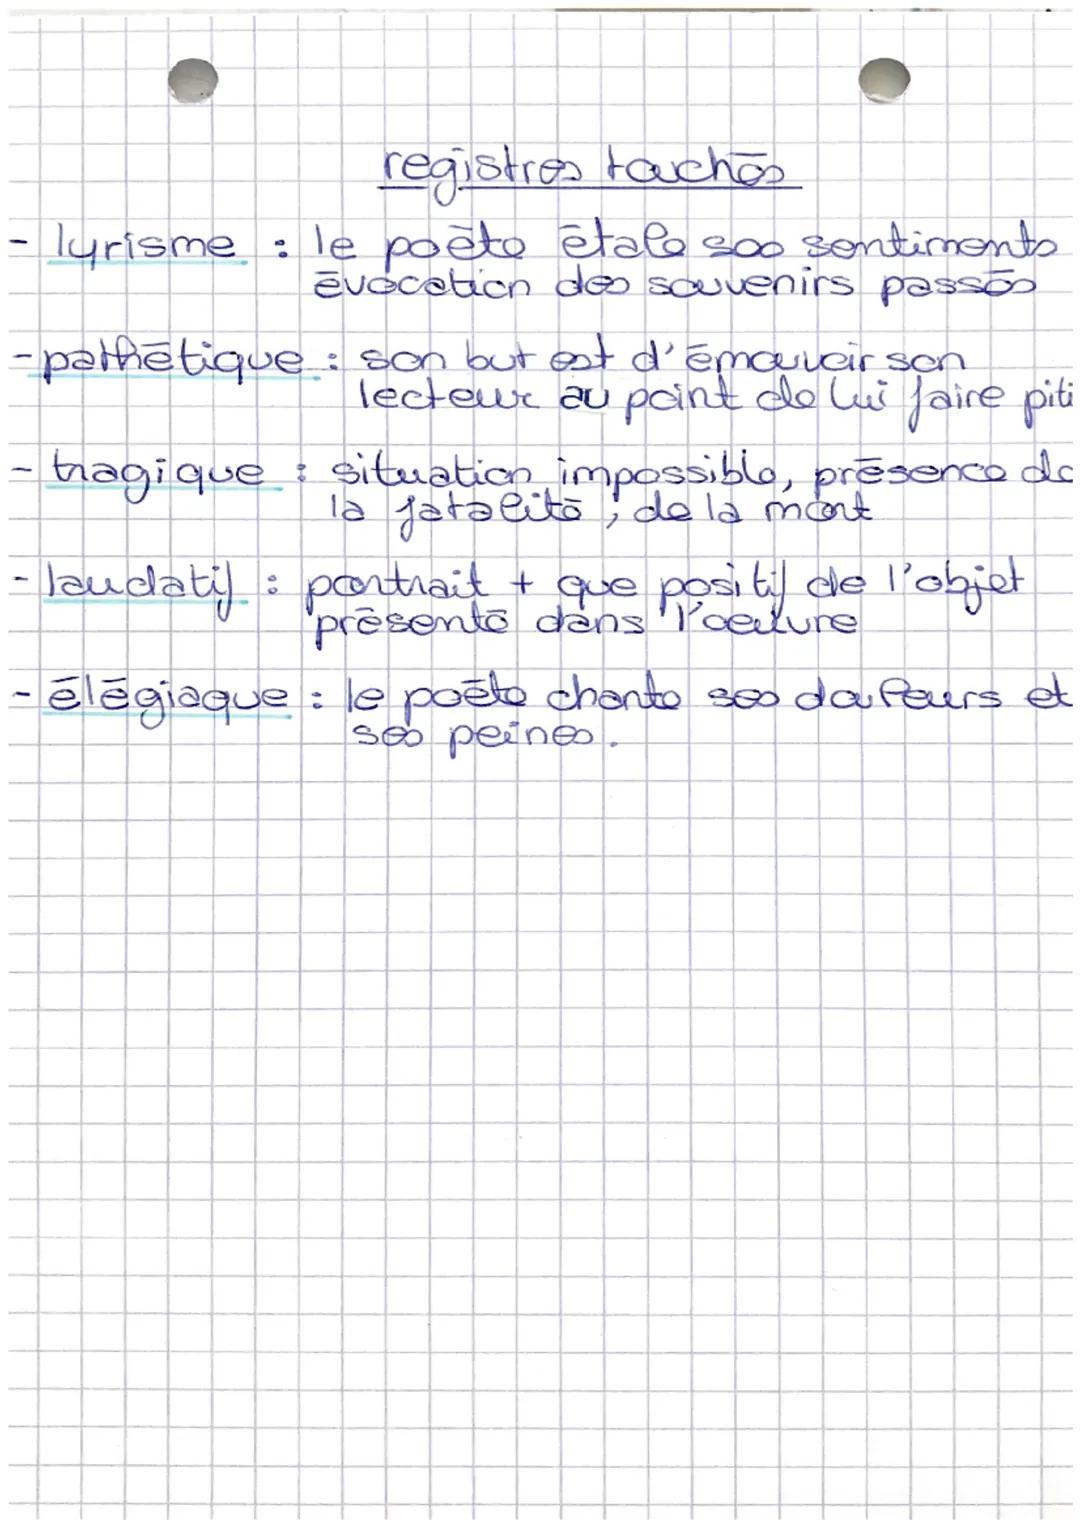 registres touchés
- lyrisme : le poète étale ses sentiments
évocation des souvenirs passés
- pathétique : son but est d'émouvoir son
lecteur au point de lui faire piti
- tragique : situation impossible, présence de
la fatalité, de la mort
- laudatif : portrait + que positif de l'objet
présenté dans l'oeuvre
- élégiaque : le poète chante ses douleurs et
ses peines.